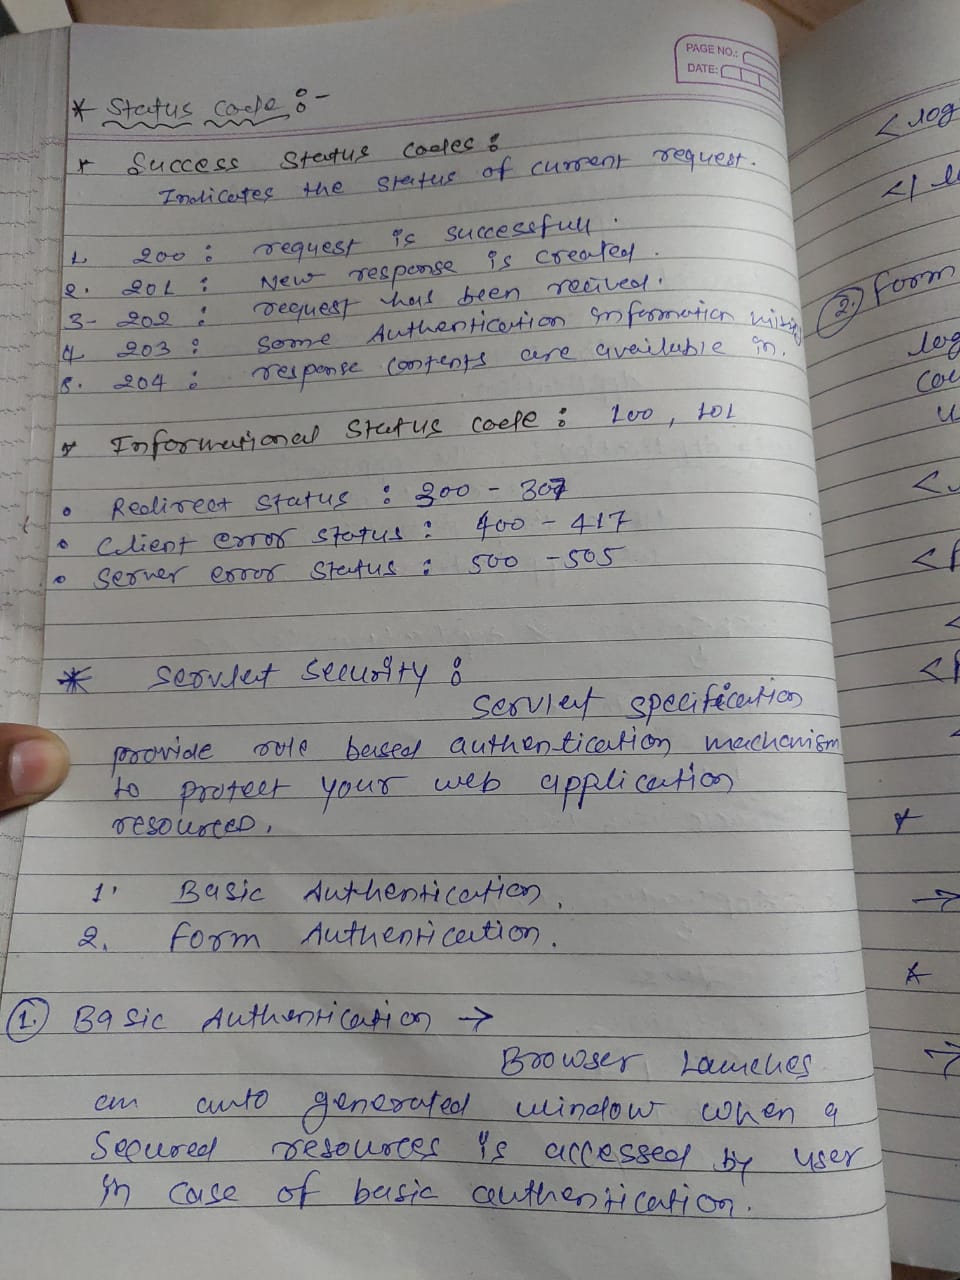 PAGE NO.:
DATE:
* Status code :-
* Success Status codes :
Indicates the status of current request.
1. 200 : request is successfull.
2. 201 : New response is created.
3- 202 : request has been recived.
4. 203 : Some Authentication information
5. 204 : response contents are available in.
* Informational Status code : 100, 101
• Redirect status : 300 - 307
• Client error status : 400 - 417
• Server error status : 500 - 505
* Servlet Security :
Servlet specification
provide role based authentication machanism
to protect your web application
resources.
1. Basic Authentication.
2. Form Authentication.
1. Basic Authentication →
Browser Launches
an auto generated window when a
Secured resources is accessed by user
in case of basic authentication.
<log
2. Form
log